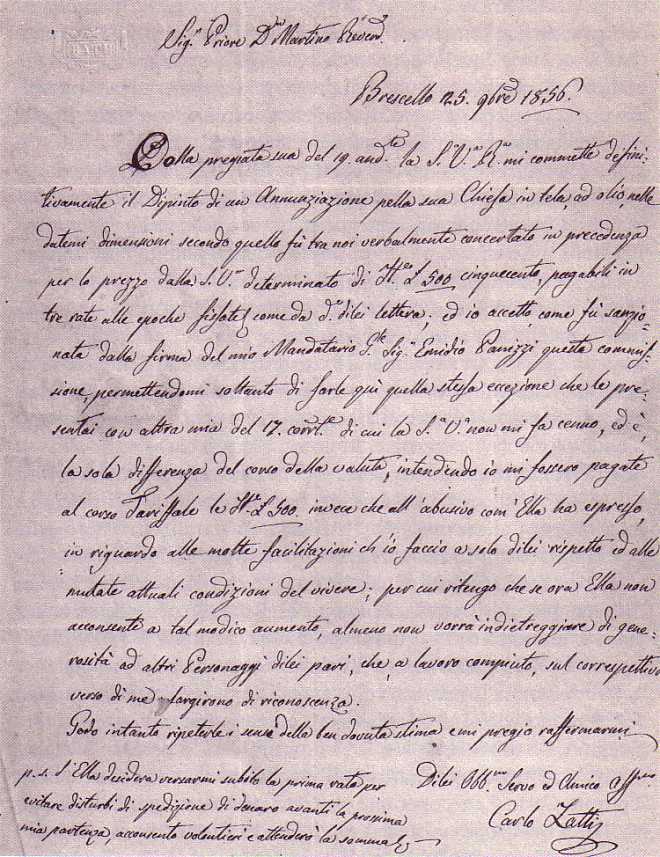 Sig.r Priore D.n Martino Rever.d
Brescello 25. 9bre 1856.
Colla pregiata sua del 19. and.te la S.a V.a R.a mi commette defini-
tivamente il Dipinto di un Annunziazione pella sua Chiesa in tela, ad olio, nelle
datemi dimensioni secondo quello fù tra noi verbalmente concertato in precedenza
per lo prezzo dalla S.V.a determinato di It.e £ 500 cinquecento, pagabili in
tre rate alle epoche fissate, come da d.a dilei lettera; ed io accetto, come fù sanzio-
nata dalla firma del mio Mandatario Sig.r Emidio Panizzi questa commis-
sione, permettendomi soltanto di farle quì quella stessa eccezione che le pre-
sentai con altra mia del 17. corr.te di cui la S.a V.a non mi fa cenno, ed è,
la sola differenza del corso della valuta, intendendo io mi fossero pagate
al corso Tariffale le It.e £ 500. invece che all'abusivo com'Ella ha espresso,
in riguardo alle molte facilitazioni ch'io faccio a solo dilei rispetto ed alle
mutate attuali condizioni del vivere; per cui ritengo che se ora Ella non
acconsente a tal modico aumento, almeno non vorrà indietreggiare di gene-
rosità ad altri Personaggi dilei pari, che, a lavoro compiuto, sul correspettivo
verso di me largirono di riconoscenza.
Godo intanto ripeterle i sensi della ben dovuta stima e mi pregio raffermarmi
Dilei Obb.mo Servo ed Amico aff.mo
Carlo Zatti
p.s. s'Ella desidera versarmi subito la prima rata per
evitare disturbi di spedizione di denaro avanti la prossima
mia partenza, acconsento volentieri e attenderò la somma